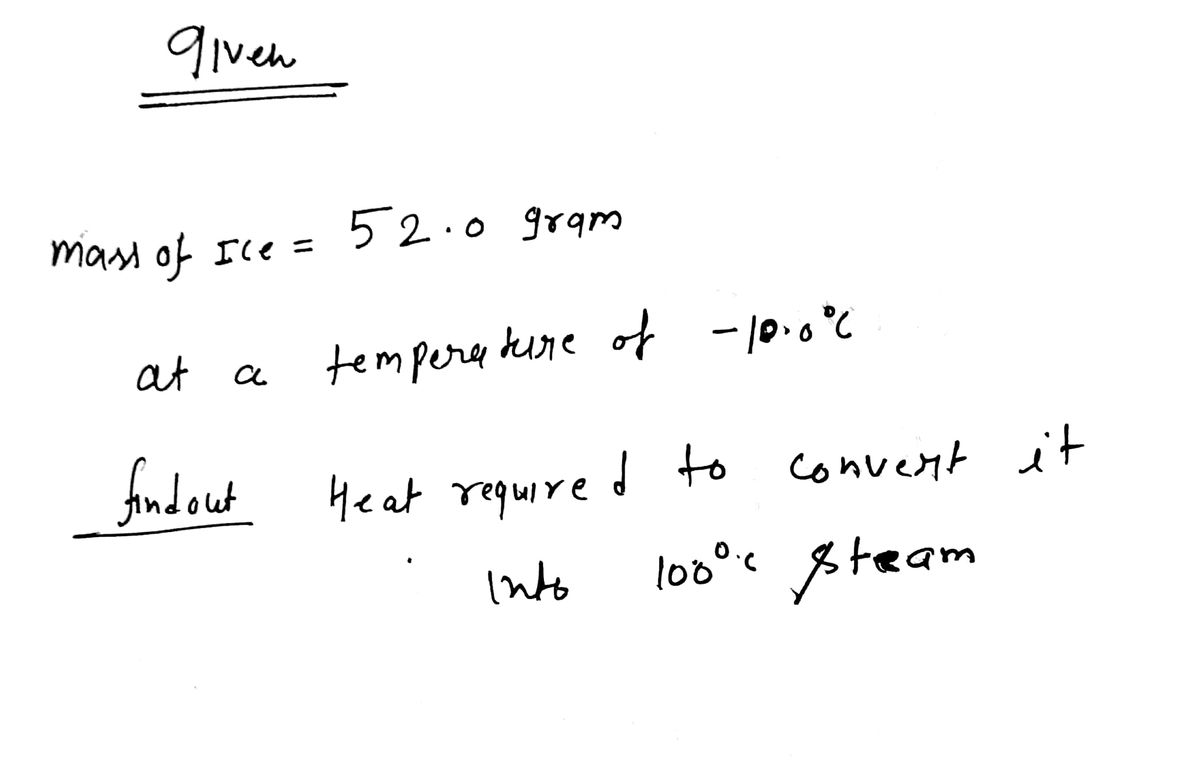 given
mass of Ice = 52.0 gram
at a temperature of -10.0°C
findout Heat required to convert it
into 100°C steam